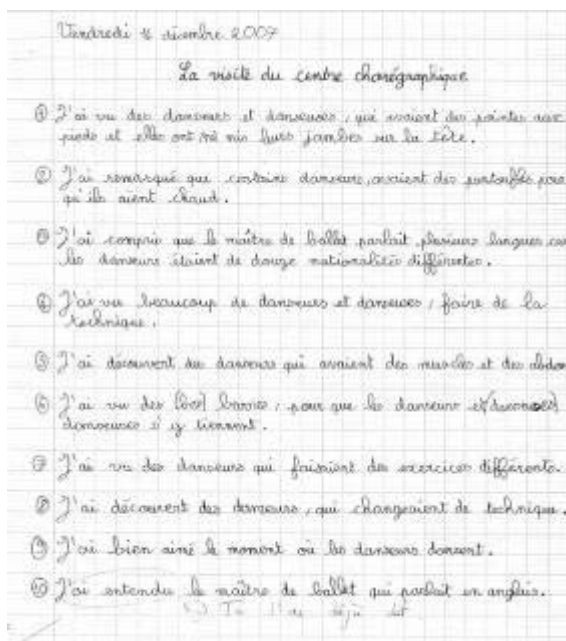 Vendredi décembre 2007
La visite du centre chorégraphique
① J'ai vu des danseurs et danseuses, qui avaient des pointes aux
pieds et elles ont mis leurs jambes sur la tête.
② J'ai remarqué que certains danseurs, avaient des pour
qu'ils aient chaud.
③ J'ai compris que le maître de ballet parlait plusieurs langues car
les danseurs étaient de douze nationalités différentes.
④ J'ai vu beaucoup de danseurs et danseuses, faire de la
technique.
⑤ J'ai découvert des danseurs qui avaient des muscles et des abdos
⑥ J'ai vu des barres, pour que les danseurs et
danseuses s'y tiennent.
⑦ J'ai vu des danseurs qui faisaient des exercices différents.
⑧ J'ai découvert des danseurs, qui changeaient de technique.
⑨ J'ai bien aimé le moment où les danseurs dansent.
⑩ J'ai entendu le maître de ballet qui parlait en anglais.
Tu l'as déjà dit